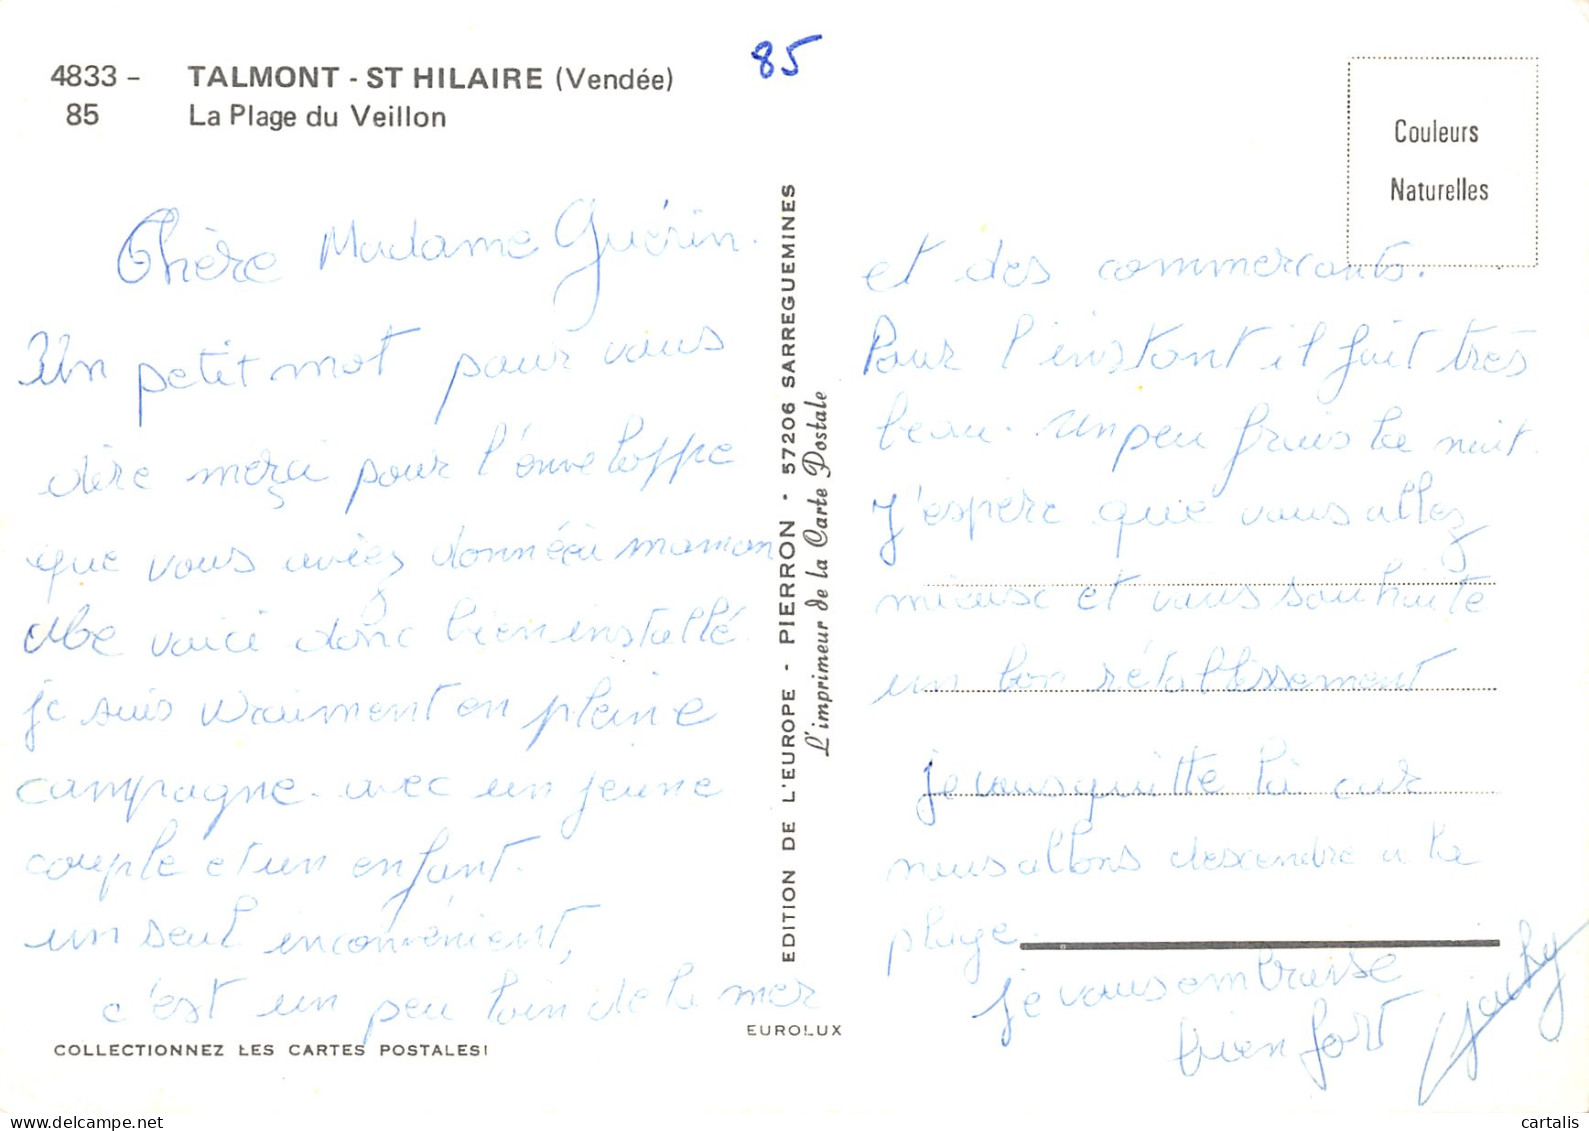 4833 - TALMONT - ST HILAIRE (Vendée)
85 La Plage du Veillon
85
Couleurs
Naturelles
Chère Madame Guérin.
Un petit mot pour vous
dire merçi pour l'enveloppe
que vous aviez donnée à maman
Me voici donc bien installé.
je suis vraiment en pleine
campagne. avec un jeune
couple et un enfant.
un seul inconvénient,
c'est un peu loin de la mer
COLLECTIONNEZ LES CARTES POSTALES!
EDITION DE L'EUROPE - PIERRON - 57206 SARREGUEMINES
L'imprimeur de la Carte Postale
EUROLUX
et des commercants.
Pour l'instant il fait très
beau. un peu frais la nuit.
J'espère que vous allez
mieux et vous souhaite
un bon rétablissement
je vous quitte là car
nous allons descendre a la
plage.
je vous embrasse
bien fort
cartalis